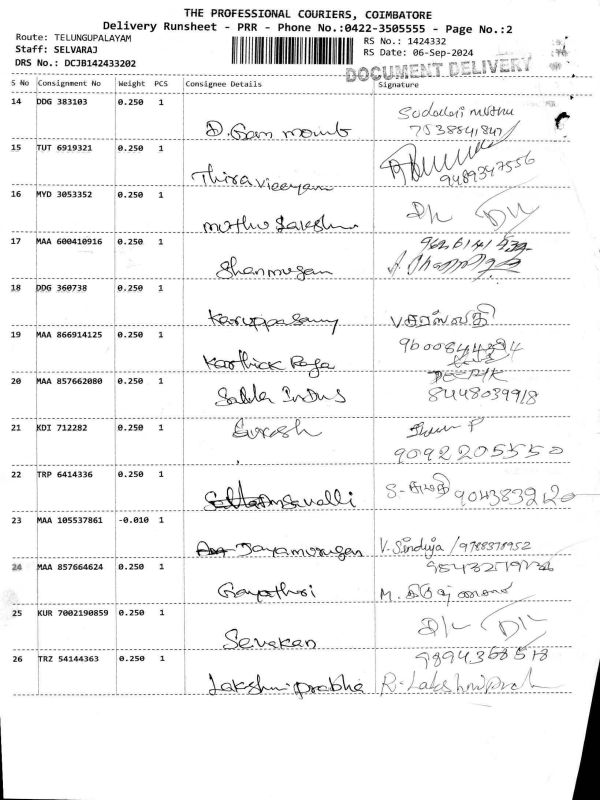 THE PROFESSIONAL COURIERS, COIMBATORE
Delivery Runsheet - PRR - Phone No.:0422-3505555 - Page No.:2
Route: TELUNGUPALAYAM
RS No.: 1424332
Staff: SELVARAJ
RS Date: 06-Sep-2024
DRS No.: DCJB142433202
DOCUMENT DELIVERY
S No Consignment No Weight PCS Consignee Details Signature
14 DDG 383103 0.250 1
7538841847
15 TUT 6919321 0.250 1
9489347556
16 MYD 3053352 0.250 1
Muthu Lakshmi
17 MAA 600410916 0.250 1
Shanmugam
18 DDG 360738 0.250 1
Karuppasamy
19 MAA 866914125 0.250 1
Karthick Raja
20 MAA 857662080 0.250 1
8448039918
21 KDI 712282 0.250 1 Suresh
9092205550
22 TRP 6414336 0.250 1
9043839120
23 MAA 105537861 -0.010 1
Jayamurugan V. Sinduja / 9788378952
24 MAA 857664624 0.250 1
Gayathri
25 KUR 7002190859 0.250 1
Sevakan
26 TRZ 54144363 0.250 1 9894368518
Lakshmi prabha R. Lakshmiprabha